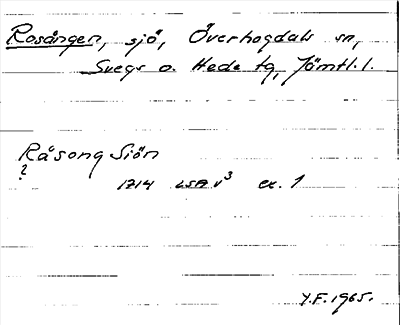 Rosången, sjö, Överhogdals sn,
Svegs o. Hede tg, Jämtl. l.
Råsong Siön
?
1714 LSA V3 ex. 1
Y.F. 1965.